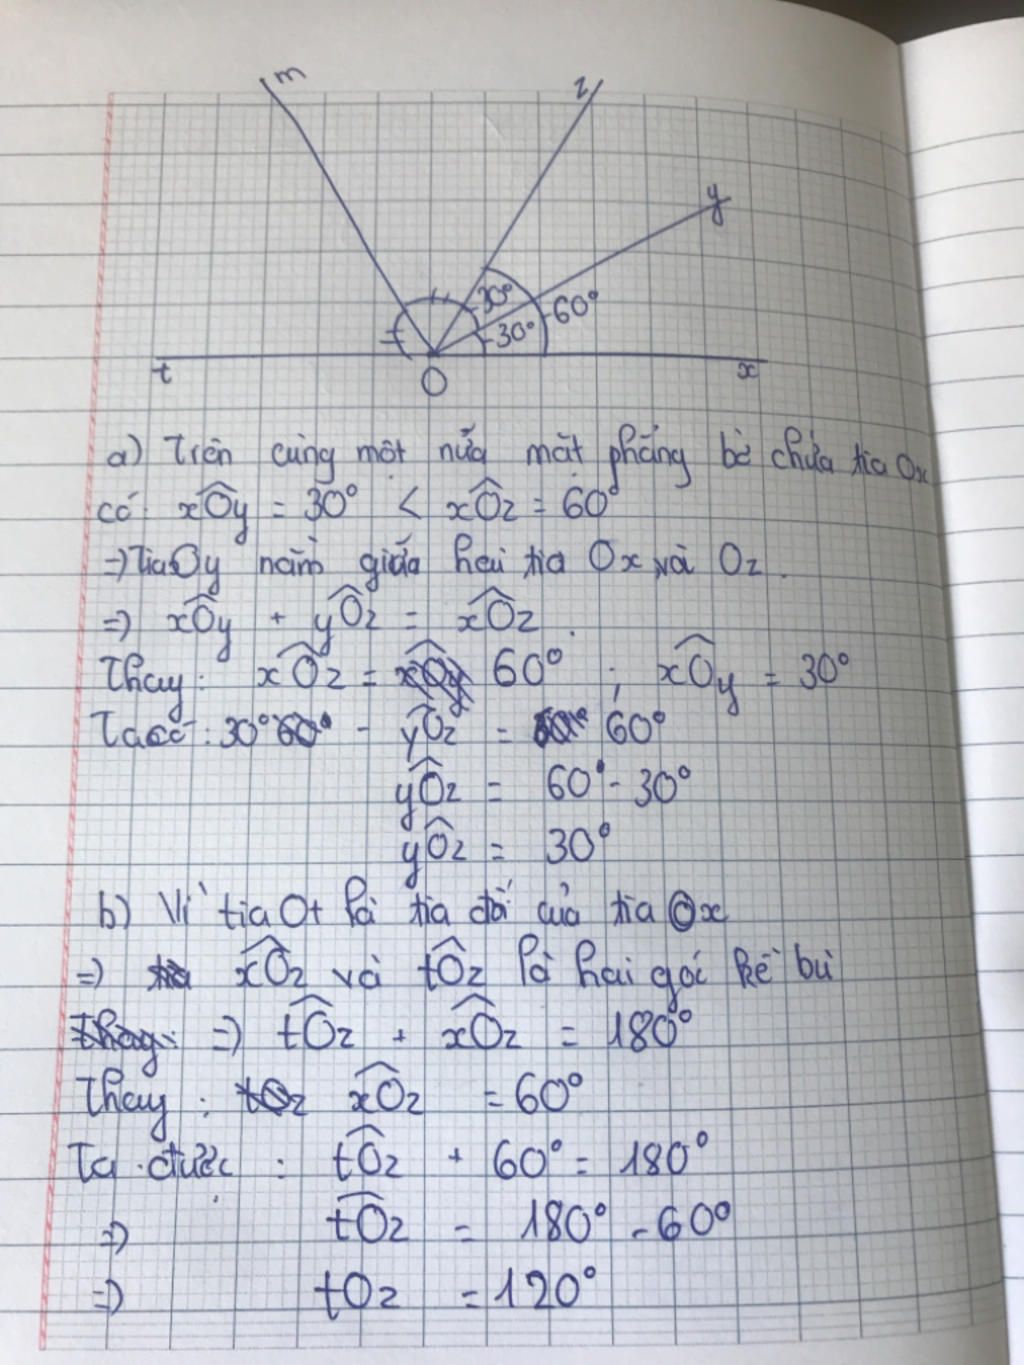 m
z
y
30°
60°
30°
t
O
x
a) Trên cùng một nửa mặt phẳng bờ chứa tia Ox
có: xÔy = 30° < xÔz = 60°
=> Tia Oy nằm giữa hai tia Ox và Oz.
=> xÔy + yÔz = xÔz.
Thay: xÔz = 60° ; xÔy = 30°
Ta có: 30° - yÔz = 60°
yÔz = 60° - 30°
yÔz = 30°
b) Vì tia Ot là tia đối của tia Ox
=> xÔz và tÔz là hai góc kề bù
=> tÔz + xÔz = 180°
Thay: xÔz = 60°
Ta được: tÔz + 60° = 180°
=> tÔz = 180° - 60°
=> tOz = 120°